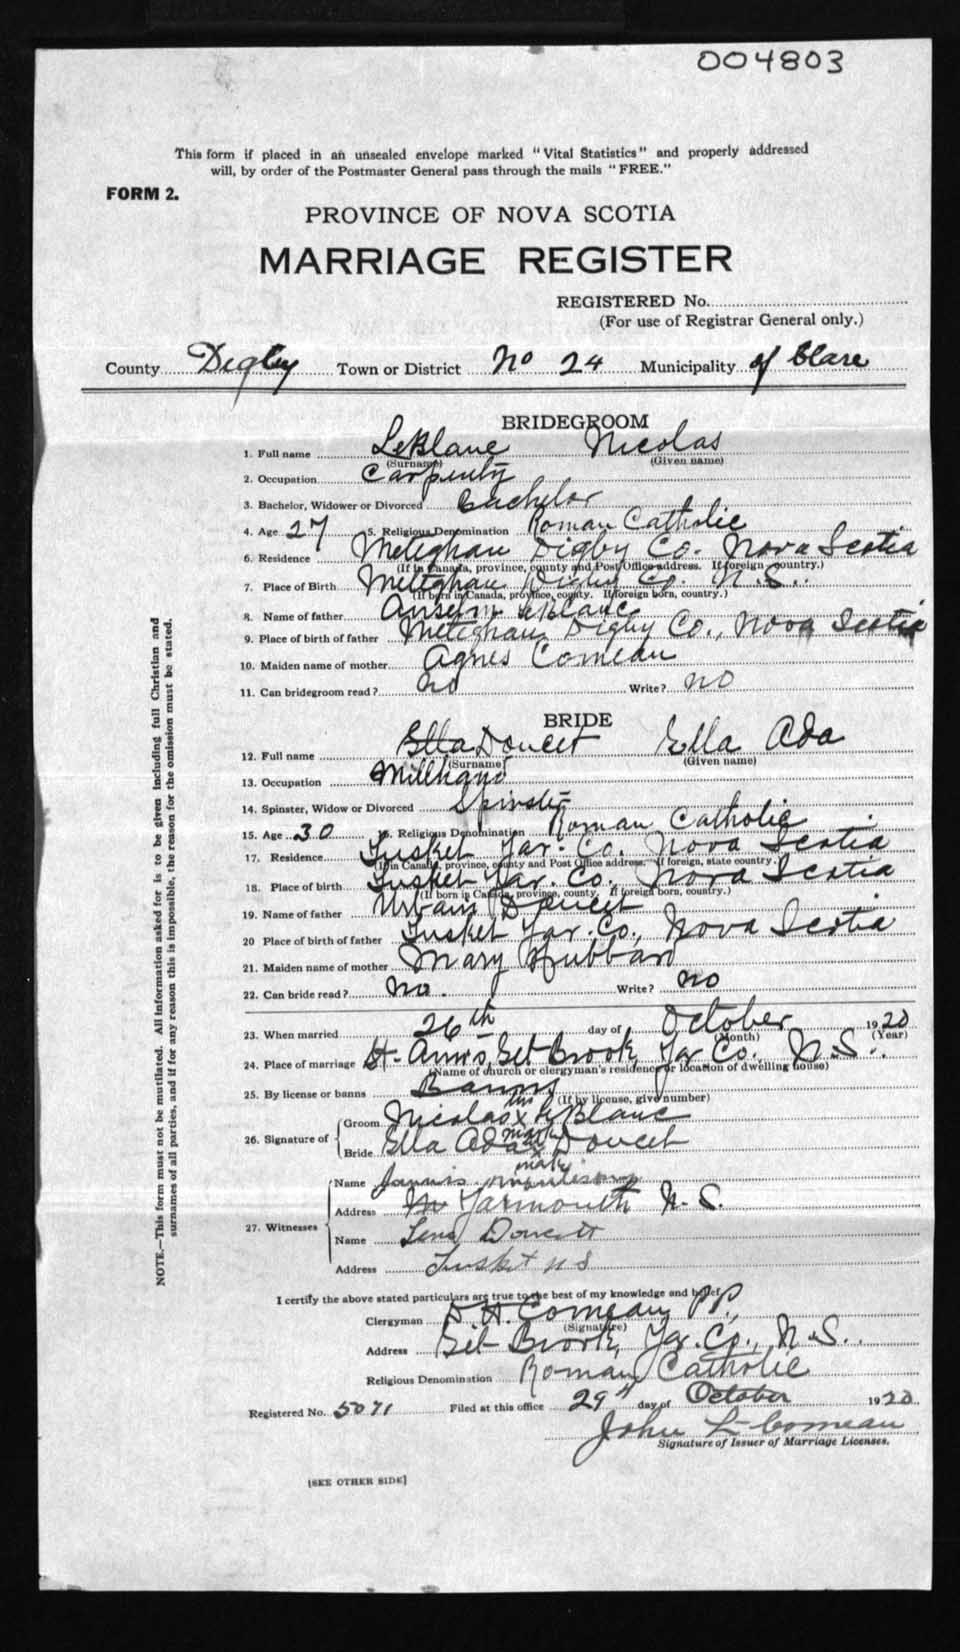 004803
This form if placed in an unsealed envelope marked "Vital Statistics" and properly addressed
will, by order of the Postmaster General pass through the mails "FREE."
FORM 2.
PROVINCE OF NOVA SCOTIA
MARRIAGE REGISTER
REGISTERED No.
(For use of Registrar General only.)
County Digby Town or District No 24 Municipality of Clare
BRIDEGROOM
1. Full name LeBlanc Nicolas
(Surname) (Given name)
2. Occupation Carpenter
3. Bachelor, Widower or Divorced Bachelor
4. Age 27 5. Religious Denomination Roman Catholic
6. Residence Meteghan Digby Co. Nova Scotia
(If in Canada, province, county and Post Office address. If foreign country.)
7. Place of Birth Meteghan Digby Co. N.S.
(If born in Canada, province, county. If foreign born, country.)
8. Name of father Anselm LeBlanc
9. Place of birth of father Meteghan Digby Co., Nova Scotia
10. Maiden name of mother Agnes Comeau
11. Can bridegroom read? no Write? no
BRIDE
12. Full name Ella Doucet Ella Ada
(Surname) (Given name)
13. Occupation Millhand
14. Spinster, Widow or Divorced Spinster
15. Age 30 16. Religious Denomination Roman Catholic
17. Residence Tusket Yar. Co. Nova Scotia
(If in Canada, province, county and Post Office address. If foreign, state country.)
18. Place of birth Tusket Yar. Co. Nova Scotia
(If born in Canada, province, county. If foreign born, country.)
19. Name of father Urbain Doucet
20 Place of birth of father Tusket Yar. Co., Nova Scotia
21. Maiden name of mother Mary Hubbard
22. Can bride read? no. Write? no
23. When married 26th day of October 1920
(Month) (Year)
24. Place of marriage St. Ann's, Eel Brook, Yar Co., N.S.
(Name of church or clergyman's residence or location of dwelling house)
25. By license or banns Banns
(If by license, give number)
26. Signature of
Groom Nicolas his x mark LeBlanc
Bride Ella Ada x mark Doucet
27. Witnesses
Name
Address Yarmouth N.S.
Name Lena Doucett
Address Tusket N S
I certify the above stated particulars are true to the best of my knowledge and belief
Clergyman D. H. Comeau PP.
(Signature)
Address Eel Brook, Yar. Co., N.S.
Religious Denomination Roman Catholic
Registered No. 5071 Filed at this office 29th day of October 1920
John L Comeau
Signature of Issuer of Marriage Licenses.
[SEE OTHER SIDE]
NOTE.—This form must not be mutilated. All information asked for is to be given including full Christian and
surnames of all parties, and if for any reason this is impossible, the reason for the omission must be stated.